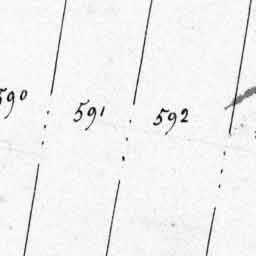 590 591 592